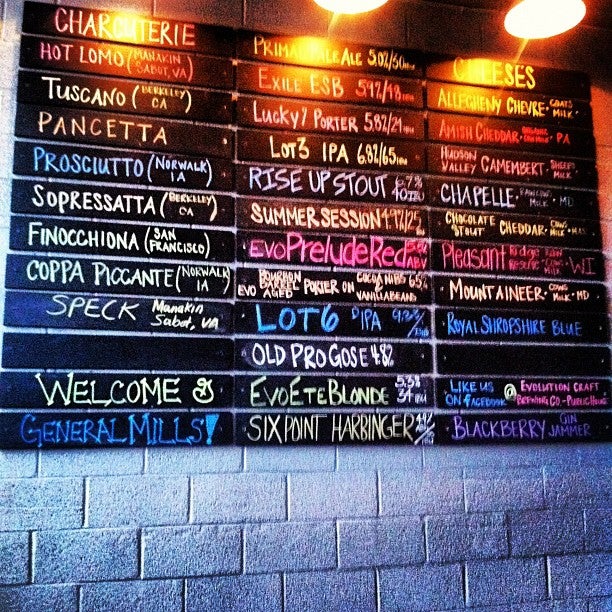 CHARCUTERIE
HOT LOMO (MANAKIN SABOT, VA)
TUSCANO (BERKELEY CA)
PANCETTA
PROSCIUTTO (NORWALK IA)
SOPRESSATTA (BERKELEY CA)
FINOCCHIONA (SAN FRANCISCO)
COPPA PICCANTE (NORWALK IA)
SPECK Manakin Sabot, VA
WELCOME
GENERAL MILLS!
PRIMAL PALE ALE 5.0%/50
EXILE ESB
LUCKY 7 PORTER 5.8%/21
LOT 3 IPA 6.8%/65
RISE UP STOUT
SUMMER SESSION
EVO Prelude Red
EVO BOURBON BARREL AGED PORTER ON COCOA NIBS VANILLA BEANS
LOT 6 DIPA
OLD PRO GOSE 4.8%
EVO ÉTÉ BLONDE
SIXPOINT HARBINGER
CHEESES
ALLEGHENY CHEVRE · GOATS MILK
AMISH CHEDDAR · PA
HUDSON VALLEY CAMEMBERT · SHEEPS MILK
CHAPELLE · MILK · MD
CHOCOLATE "STOUT" CHEDDAR · COWS MILK
Pleasant Ridge Reserve WI
MOUNTAINEER · COWS MILK · MD
ROYAL SHROPSHIRE BLUE
LIKE US ON FACEBOOK @ EVOLUTION CRAFT BREWING CO - PUBLIC HOUSE
BLACKBERRY GIN JAMMER